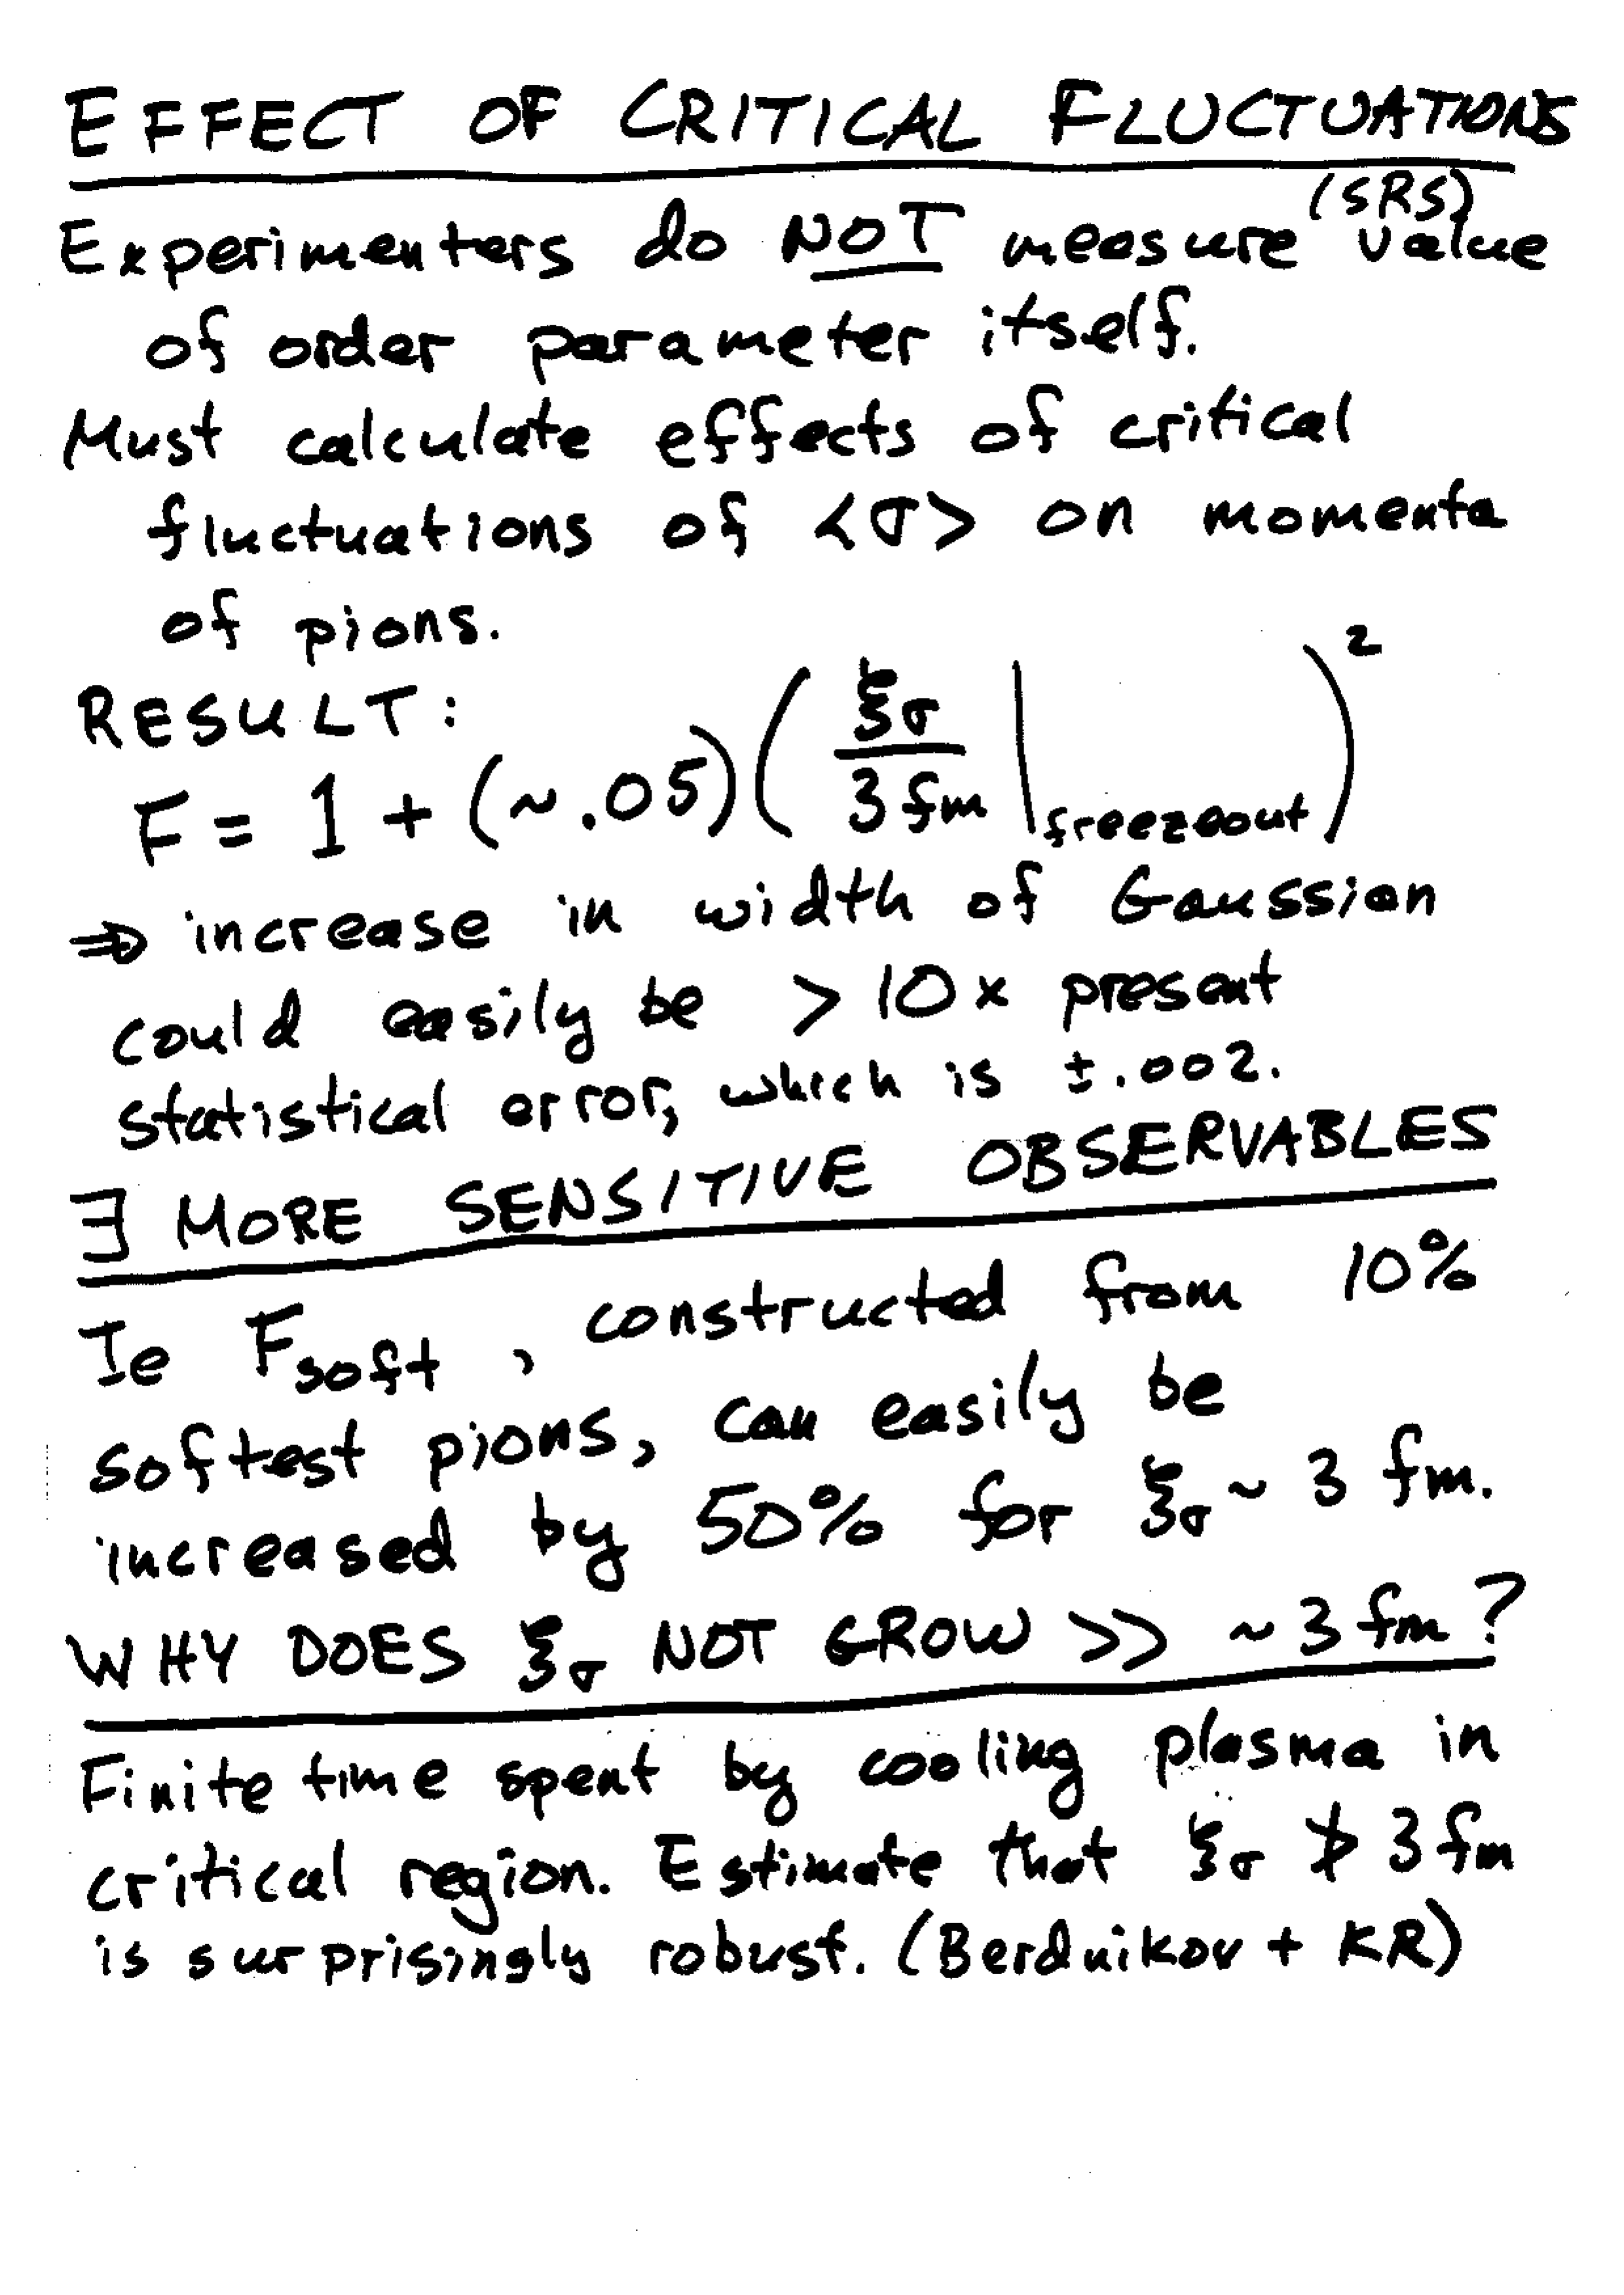 EFFECT OF CRITICAL FLUCTUATIONS
(SRS)
Experimenters do NOT measure value
of order parameter itself.
Must calculate effects of critical
fluctuations of <σ> on momenta
of pions.
RESULT:
F = 1 + (~.05) ( ξσ / 3 fm | freezeout )²
⇒ increase in width of Gaussian
could easily be > 10 x present
statistical error, which is ±.002.
∃ MORE SENSITIVE OBSERVABLES
Ie Fsoft, constructed from 10%
softest pions, can easily be
increased by 50% for ξσ ~ 3 fm.
WHY DOES ξσ NOT GROW >> ~ 3 fm?
Finite time spent by cooling plasma in
critical region. Estimate that ξσ ≯ 3 fm
is surprisingly robust. (Berdnikov + KR)